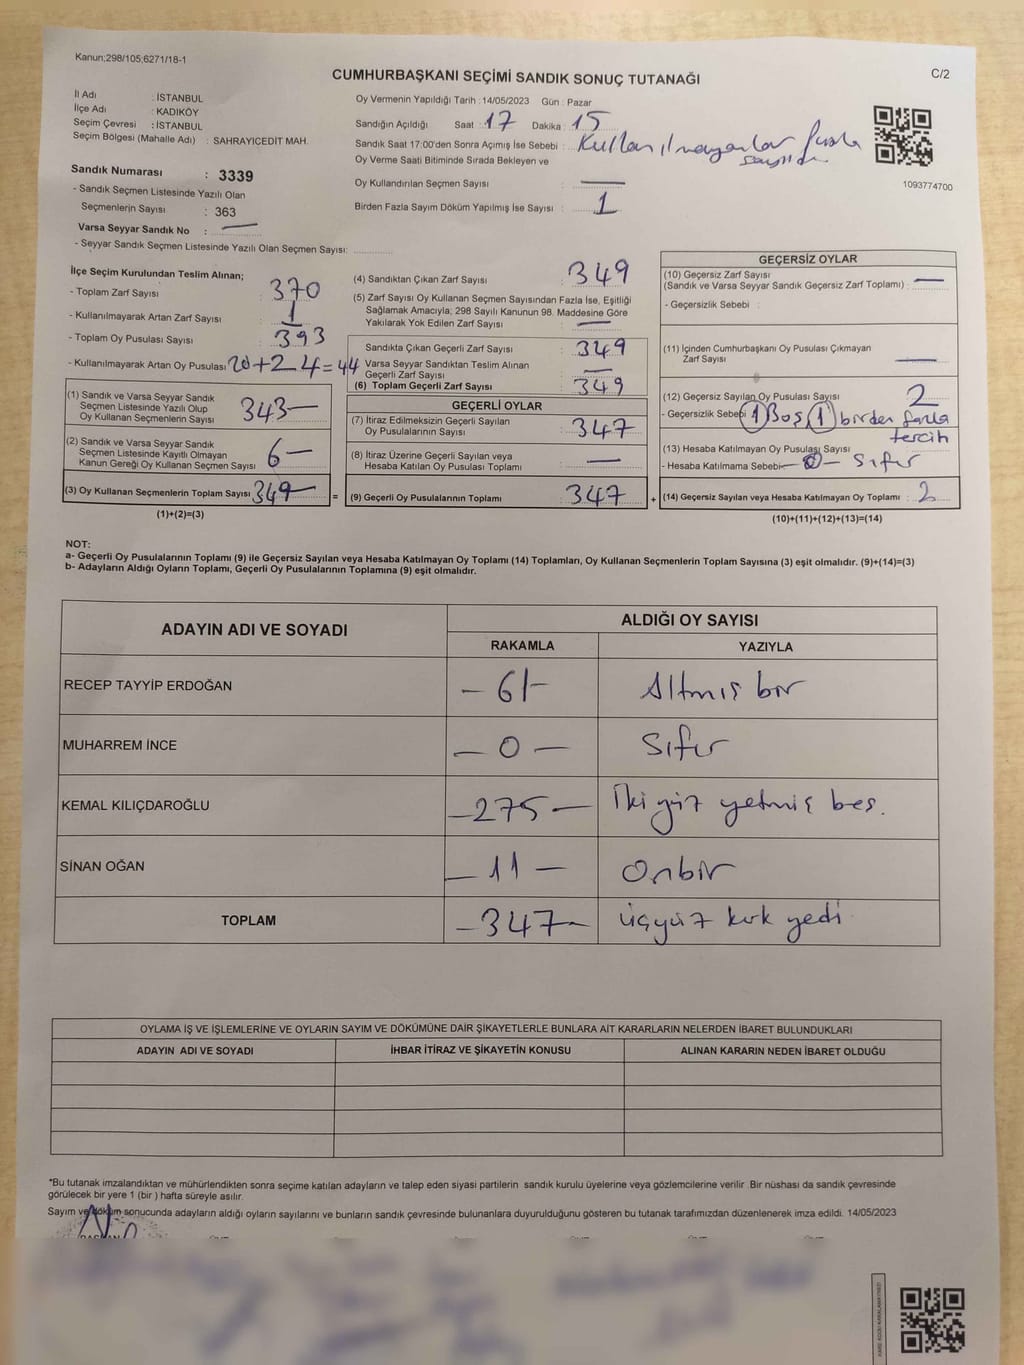 Kanun;298/105,6271/18-1
C/2
CUMHURBAŞKANI SEÇİMİ SANDIK SONUÇ TUTANAĞI
İl Adı : İSTANBUL
İlçe Adı : KADIKÖY
Seçim Çevresi : İSTANBUL
Seçim Bölgesi (Mahalle Adı) : SAHRAYICEDİT MAH.
Sandık Numarası : 3339
- Sandık Seçmen Listesinde Yazılı Olan
Seçmenlerin Sayısı : 363
Varsa Seyyar Sandık No : —
- Seyyar Sandık Seçmen Listesinde Yazılı Olan Seçmen Sayısı:
Oy Vermenin Yapıldığı Tarih : 14/05/2023 Gün : Pazar
Sandığın Açıldığı Saat : 17 Dakika : 15
Sandık Saat 17:00'den Sonra Açımış İse Sebebi : Kullanılmayanlar fazla
sayıldı
Oy Verme Saati Bitiminde Sırada Bekleyen ve
Oy Kullandırılan Seçmen Sayısı : —
Birden Fazla Sayım Döküm Yapılmış İse Sayısı : 1
1093774700
İlçe Seçim Kurulundan Teslim Alınan;
- Toplam Zarf Sayısı : 370
- Kullanılmayarak Artan Zarf Sayısı : 1
- Toplam Oy Pusulası Sayısı : 393
- Kullanılmayarak Artan Oy Pusulası 20+24=44
(1) Sandık ve Varsa Seyyar Sandık
Seçmen Listesinde Yazılı Olup
Oy Kullanan Seçmenlerin Sayısı 343—
(2) Sandık ve Varsa Seyyar Sandık
Seçmen Listesinde Kayıtlı Olmayan
Kanun Gereği Oy Kullanan Seçmen Sayısı 6—
(3) Oy Kullanan Seçmenlerin Toplam Sayısı 349—
(1)+(2)=(3)
=
(4) Sandıktan Çıkan Zarf Sayısı : 349
(5) Zarf Sayısı Oy Kullanan Seçmen Sayısından Fazla İse, Eşitliği
Sağlamak Amacıyla; 298 Sayılı Kanunun 98. Maddesine Göre
Yakılarak Yok Edilen Zarf Sayısı : —
Sandıkta Çıkan Geçerli Zarf Sayısı : 349
Varsa Seyyar Sandıktan Teslim Alınan
Geçerli Zarf Sayısı : —
(6) Toplam Geçerli Zarf Sayısı : 349
GEÇERLİ OYLAR
(7) İtiraz Edilmeksizin Geçerli Sayılan
Oy Pusulalarının Sayısı : 347
(8) İtiraz Üzerine Geçerli Sayılan veya
Hesaba Katılan Oy Pusulası Toplamı : —
(9) Geçerli Oy Pusulalarının Toplamı : 347
+
GEÇERSİZ OYLAR
(10) Geçersiz Zarf Sayısı
(Sandık ve Varsa Seyyar Sandık Geçersiz Zarf Toplamı) : —
- Geçersizlik Sebebi :
(11) İçinden Cumhurbaşkanı Oy Pusulası Çıkmayan
Zarf Sayısı —
(12) Geçersiz Sayılan Oy Pusulası Sayısı 2
- Geçersizlik Sebebi 1 Boş 1 birden fazla
tercih
(13) Hesaba Katılmayan Oy Pusulası Sayısı
- Hesaba Katılmama Sebebi —0— sıfır
(14) Geçersiz Sayılan veya Hesaba Katılmayan Oy Toplamı : 2
(10)+(11)+(12)+(13)=(14)
NOT:
a- Geçerli Oy Pusulalarının Toplamı (9) ile Geçersiz Sayılan veya Hesaba Katılmayan Oy Toplamı (14) Toplamları, Oy Kullanan Seçmenlerin Toplam Sayısına (3) eşit olmalıdır. (9)+(14)=(3)
b- Adayların Aldığı Oyların Toplamı, Geçerli Oy Pusulalarının Toplamına (9) eşit olmalıdır.
ADAYIN ADI VE SOYADI
ALDIĞI OY SAYISI
RAKAMLA YAZIYLA
RECEP TAYYİP ERDOĞAN – 61– Altmış bir
MUHARREM İNCE – 0 – Sıfır
KEMAL KILIÇDAROĞLU –275– İkiyüz yetmiş beş.
SİNAN OĞAN – 11 – Onbir
TOPLAM –347– üçyüz kırk yedi
OYLAMA İŞ VE İŞLEMLERİNE VE OYLARIN SAYIM VE DÖKÜMÜNE DAİR ŞİKAYETLERLE BUNLARA AİT KARARLARIN NELERDEN İBARET BULUNDUKLARI
ADAYIN ADI VE SOYADI İHBAR İTİRAZ VE ŞİKAYETİN KONUSU ALINAN KARARIN NEDEN İBARET OLDUĞU
*Bu tutanak imzalandıktan ve mühürlendikten sonra seçime katılan adayların ve talep eden siyasi partilerin sandık kurulu üyelerine veya gözlemcilerine verilir. Bir nüshası da sandık çevresinde
görülecek bir yere 1 (bir ) hafta süreyle asılır.
Sayım ve döküm sonucunda adayların aldığı oyların sayılarını ve bunların sandık çevresinde bulunanlara duyurulduğunu gösteren bu tutanak tarafımızdan düzenlenerek imza edildi. 14/05/2023